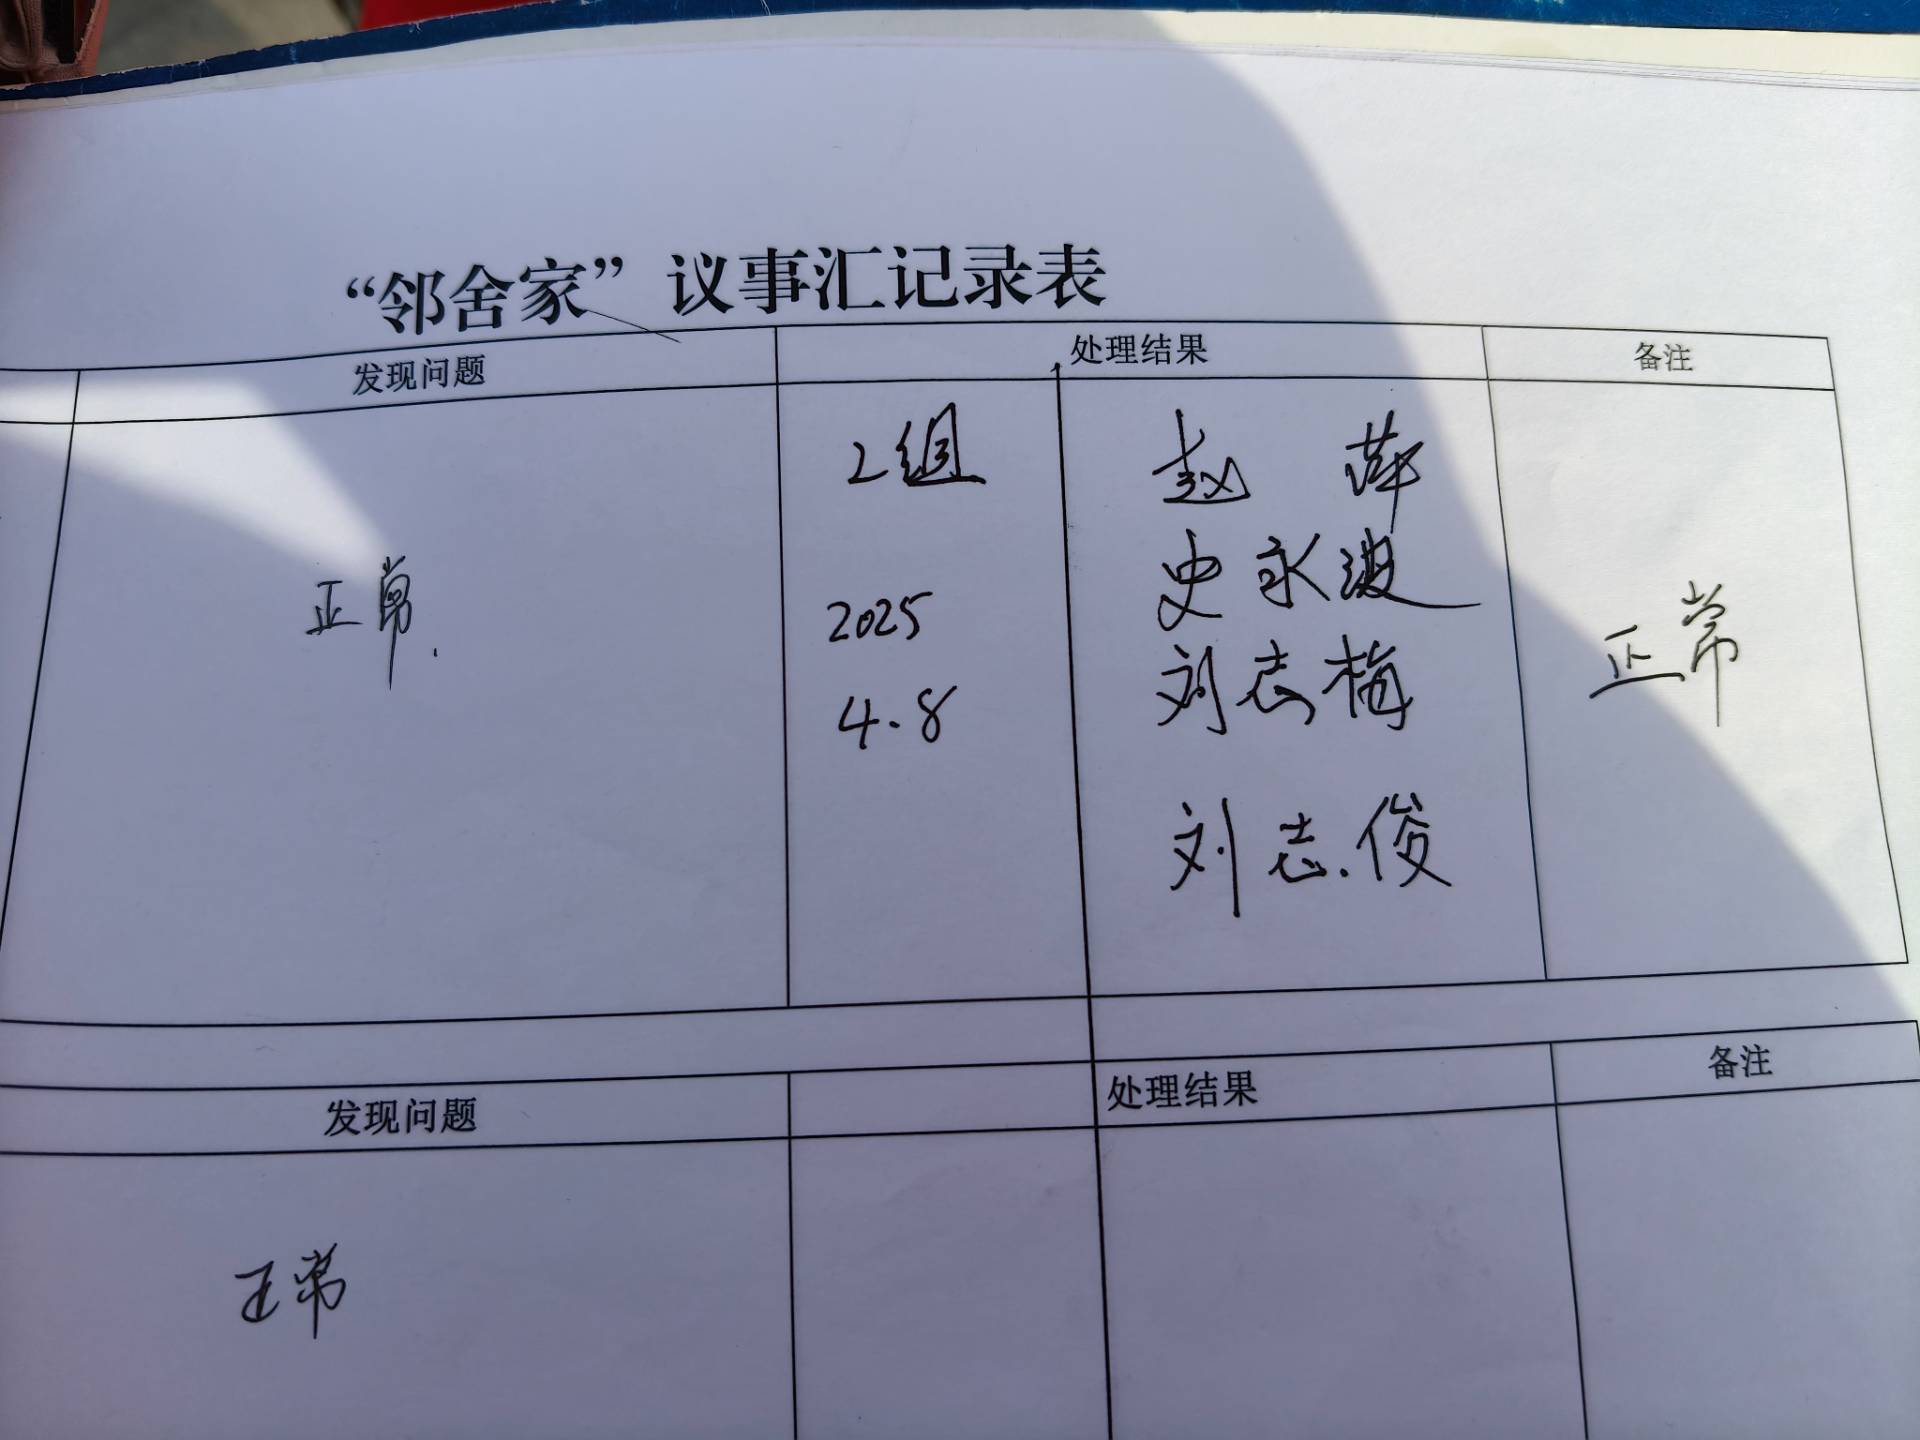 “邻舍家”议事汇记录表
发现问题 处理结果 备注
2组 赵 萍
史永波
正常 2025 刘志梅 正常
4.8
刘志俊
发现问题 处理结果 备注
正常